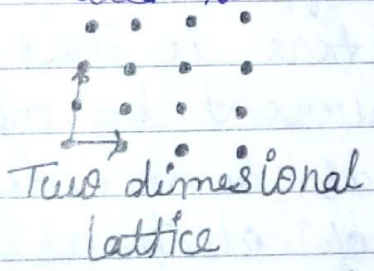 Two dimesional
lattice